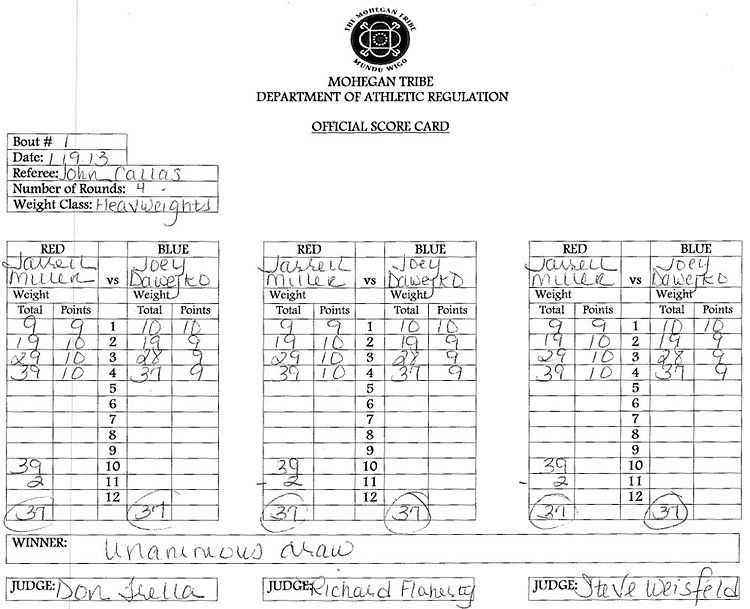 THE MOHEGAN TRIBE
MUNDU WIGO
MOHEGAN TRIBE
DEPARTMENT OF ATHLETIC REGULATION
OFFICIAL SCORE CARD
Bout # 1
Date: 1 19 13
Referee: John Callas
Number of Rounds: 4
Weight Class: Heavweights
RED BLUE RED BLUE RED BLUE
Jarrell Joey Jarrell Joey Jarrell Joey
Miller vs Dawejko Miller vs Dawejko Miller vs Dawejko
Weight Weight Weight Weight Weight Weight
Total Points Total Points Total Points Total Points Total Points Total Points
9 9 1 10 10 9 9 1 10 10 9 9 1 10 10
19 10 2 19 9 19 10 2 19 9 19 10 2 19 9
29 10 3 28 9 29 10 3 28 9 29 10 3 28 9
39 10 4 37 9 39 10 4 37 9 39 10 4 37 9
5 5 5
6 6 6
7 7 7
8 8 8
9 9 9
39 10 39 10 39 10
2 11 - 2 11 - 2 11
12 12 12
37 37 37 37 37 37
WINNER: Unanimous draw
JUDGE: Don Trella JUDGE: Richard Flaherty JUDGE: Steve Weisfeld